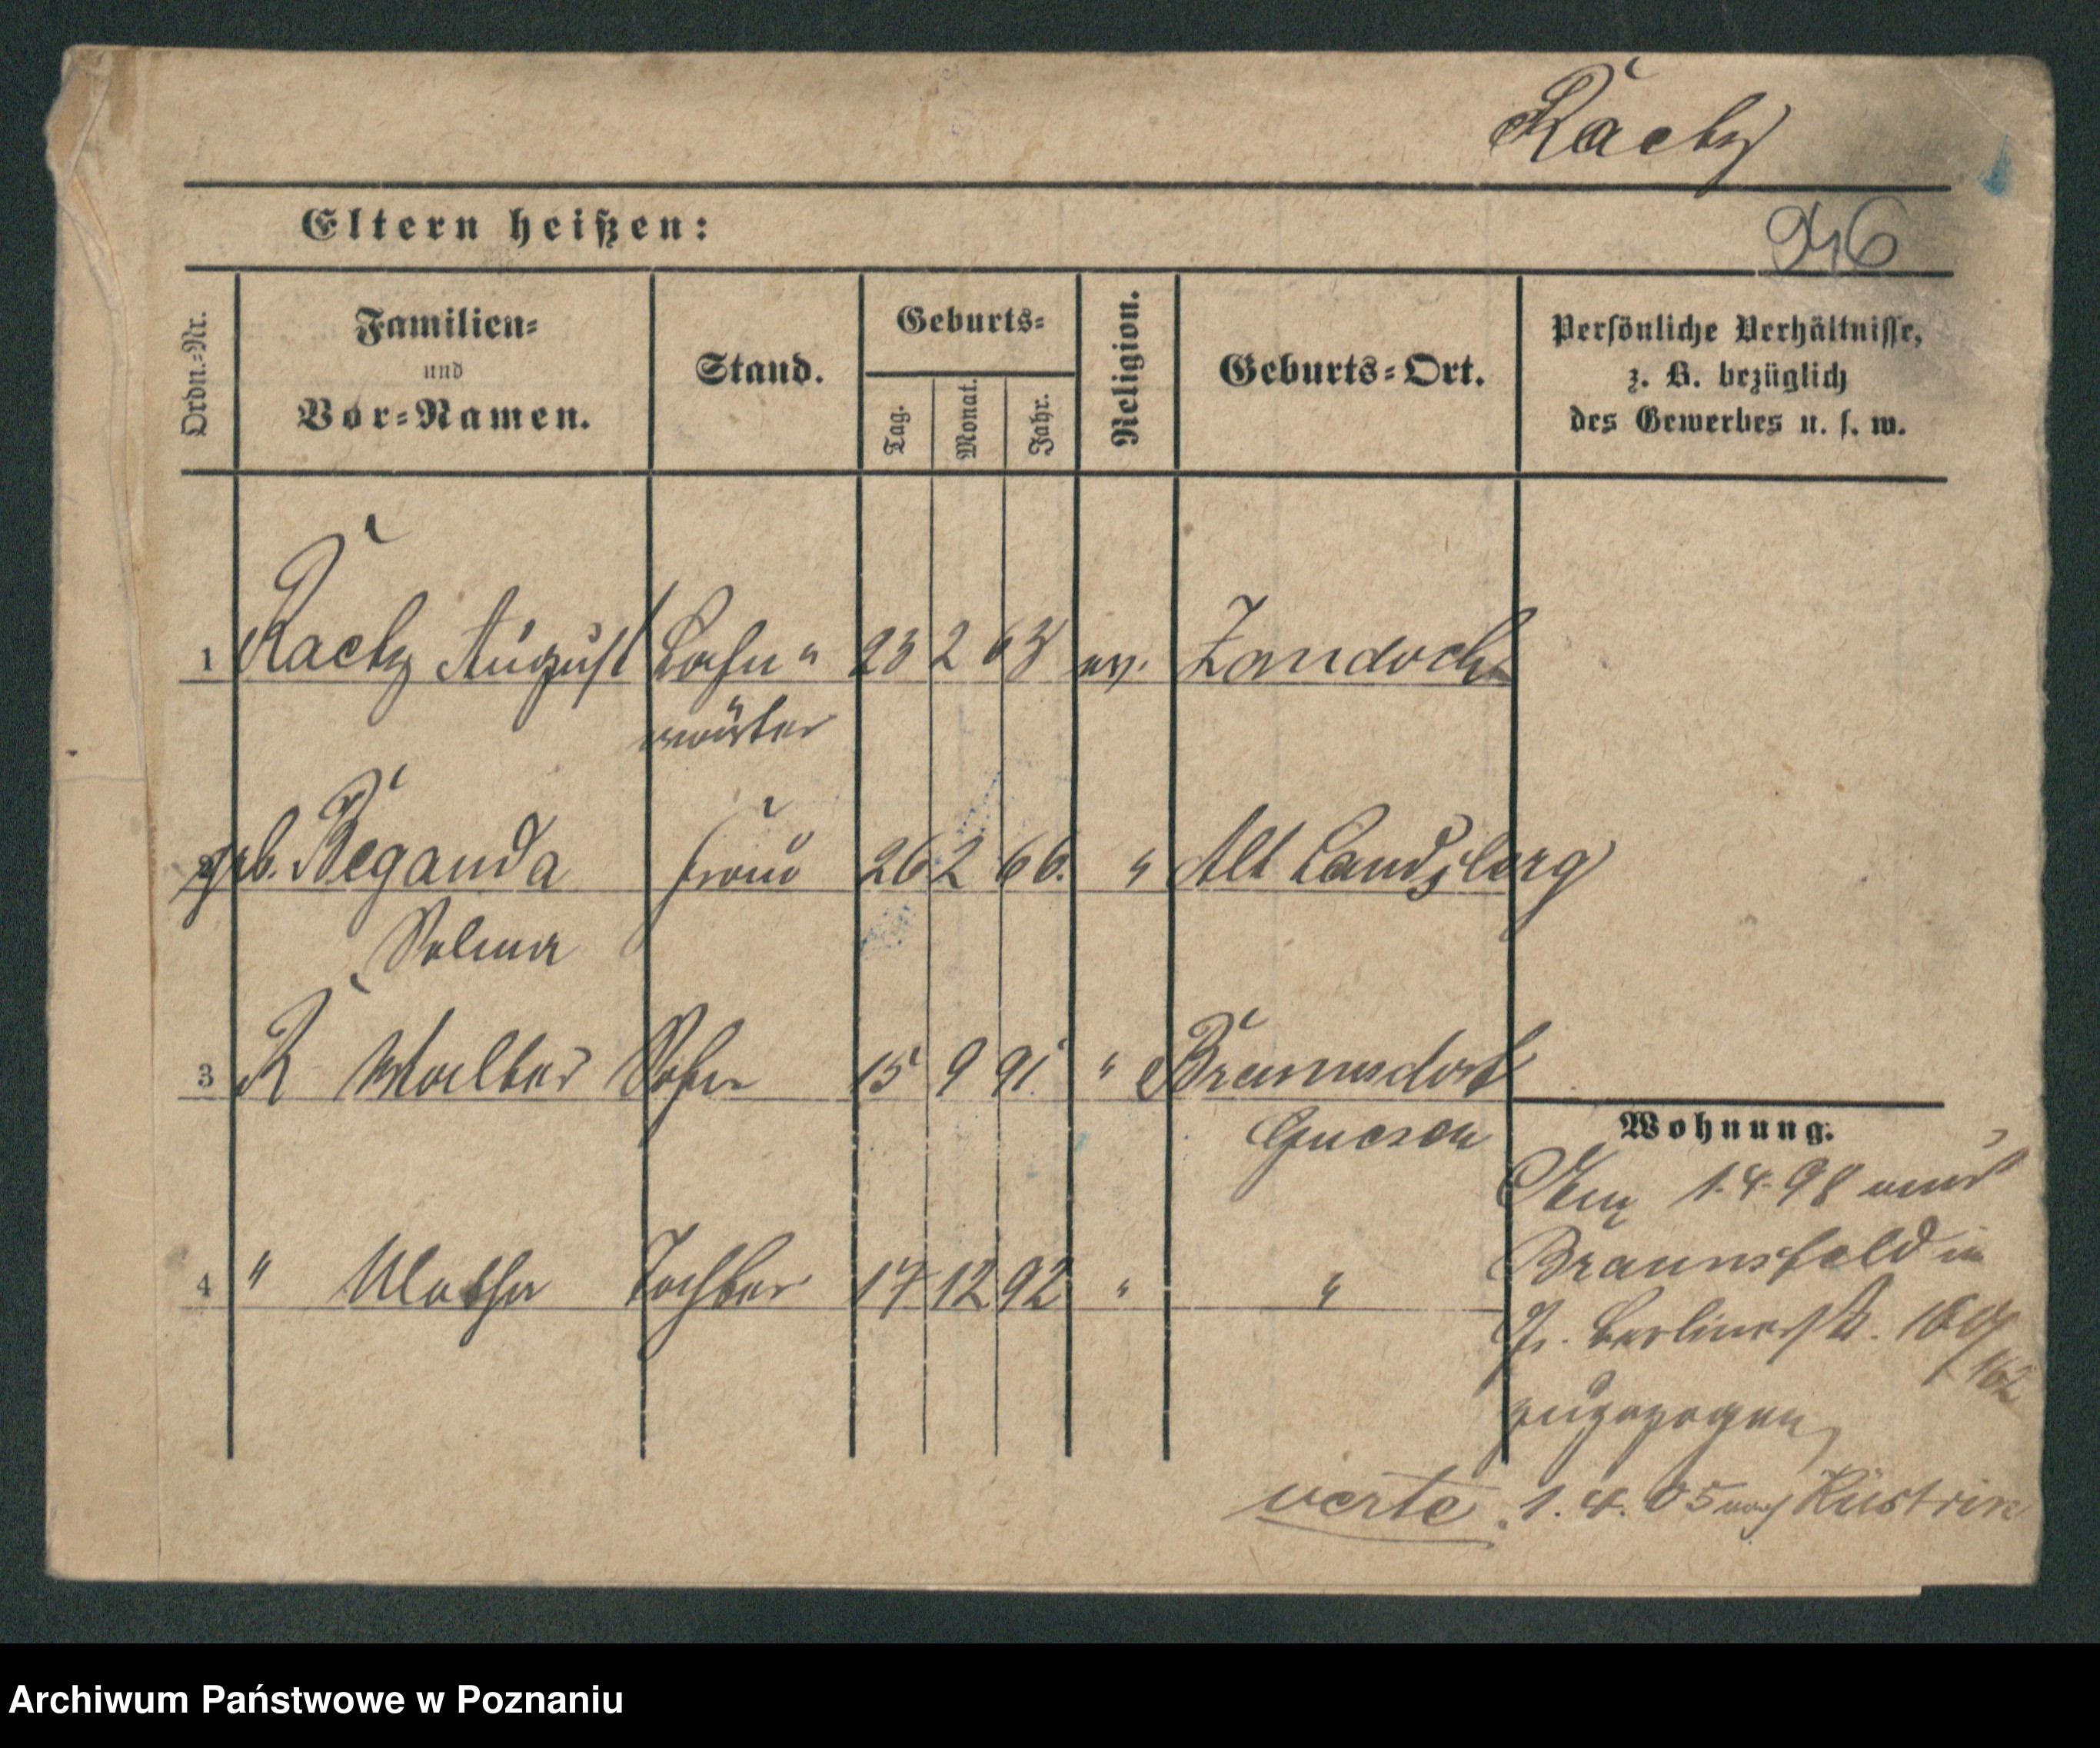 Racky
946
Eltern heißen:
Ordn.-Nr.
Familien-
und
Vor-Namen.
Stand.
Geburts-
Tag.
Monat.
Jahr.
Religion.
Geburts-Ort.
Persönliche Verhältnisse,
z. B. bezüglich
des Gewerbes u. s. w.
1 Racky August Bahn- 23 2 63 ev. Zandoch
wärter
geb. Beganda Frau 26 2 66. " Alt Landsberg
Selma
3 R Walter Sohn 15 9 91. " Braunsdorf
Gnesen
4 " Tochter 17 12 92 " "
Wohnung.
1.4.98 aus
Braunsfeld in
Gr. Berlinerstr.
162
zugezogen
verte. 1.4.05 nach Küstrin
Archiwum Państwowe w Poznaniu